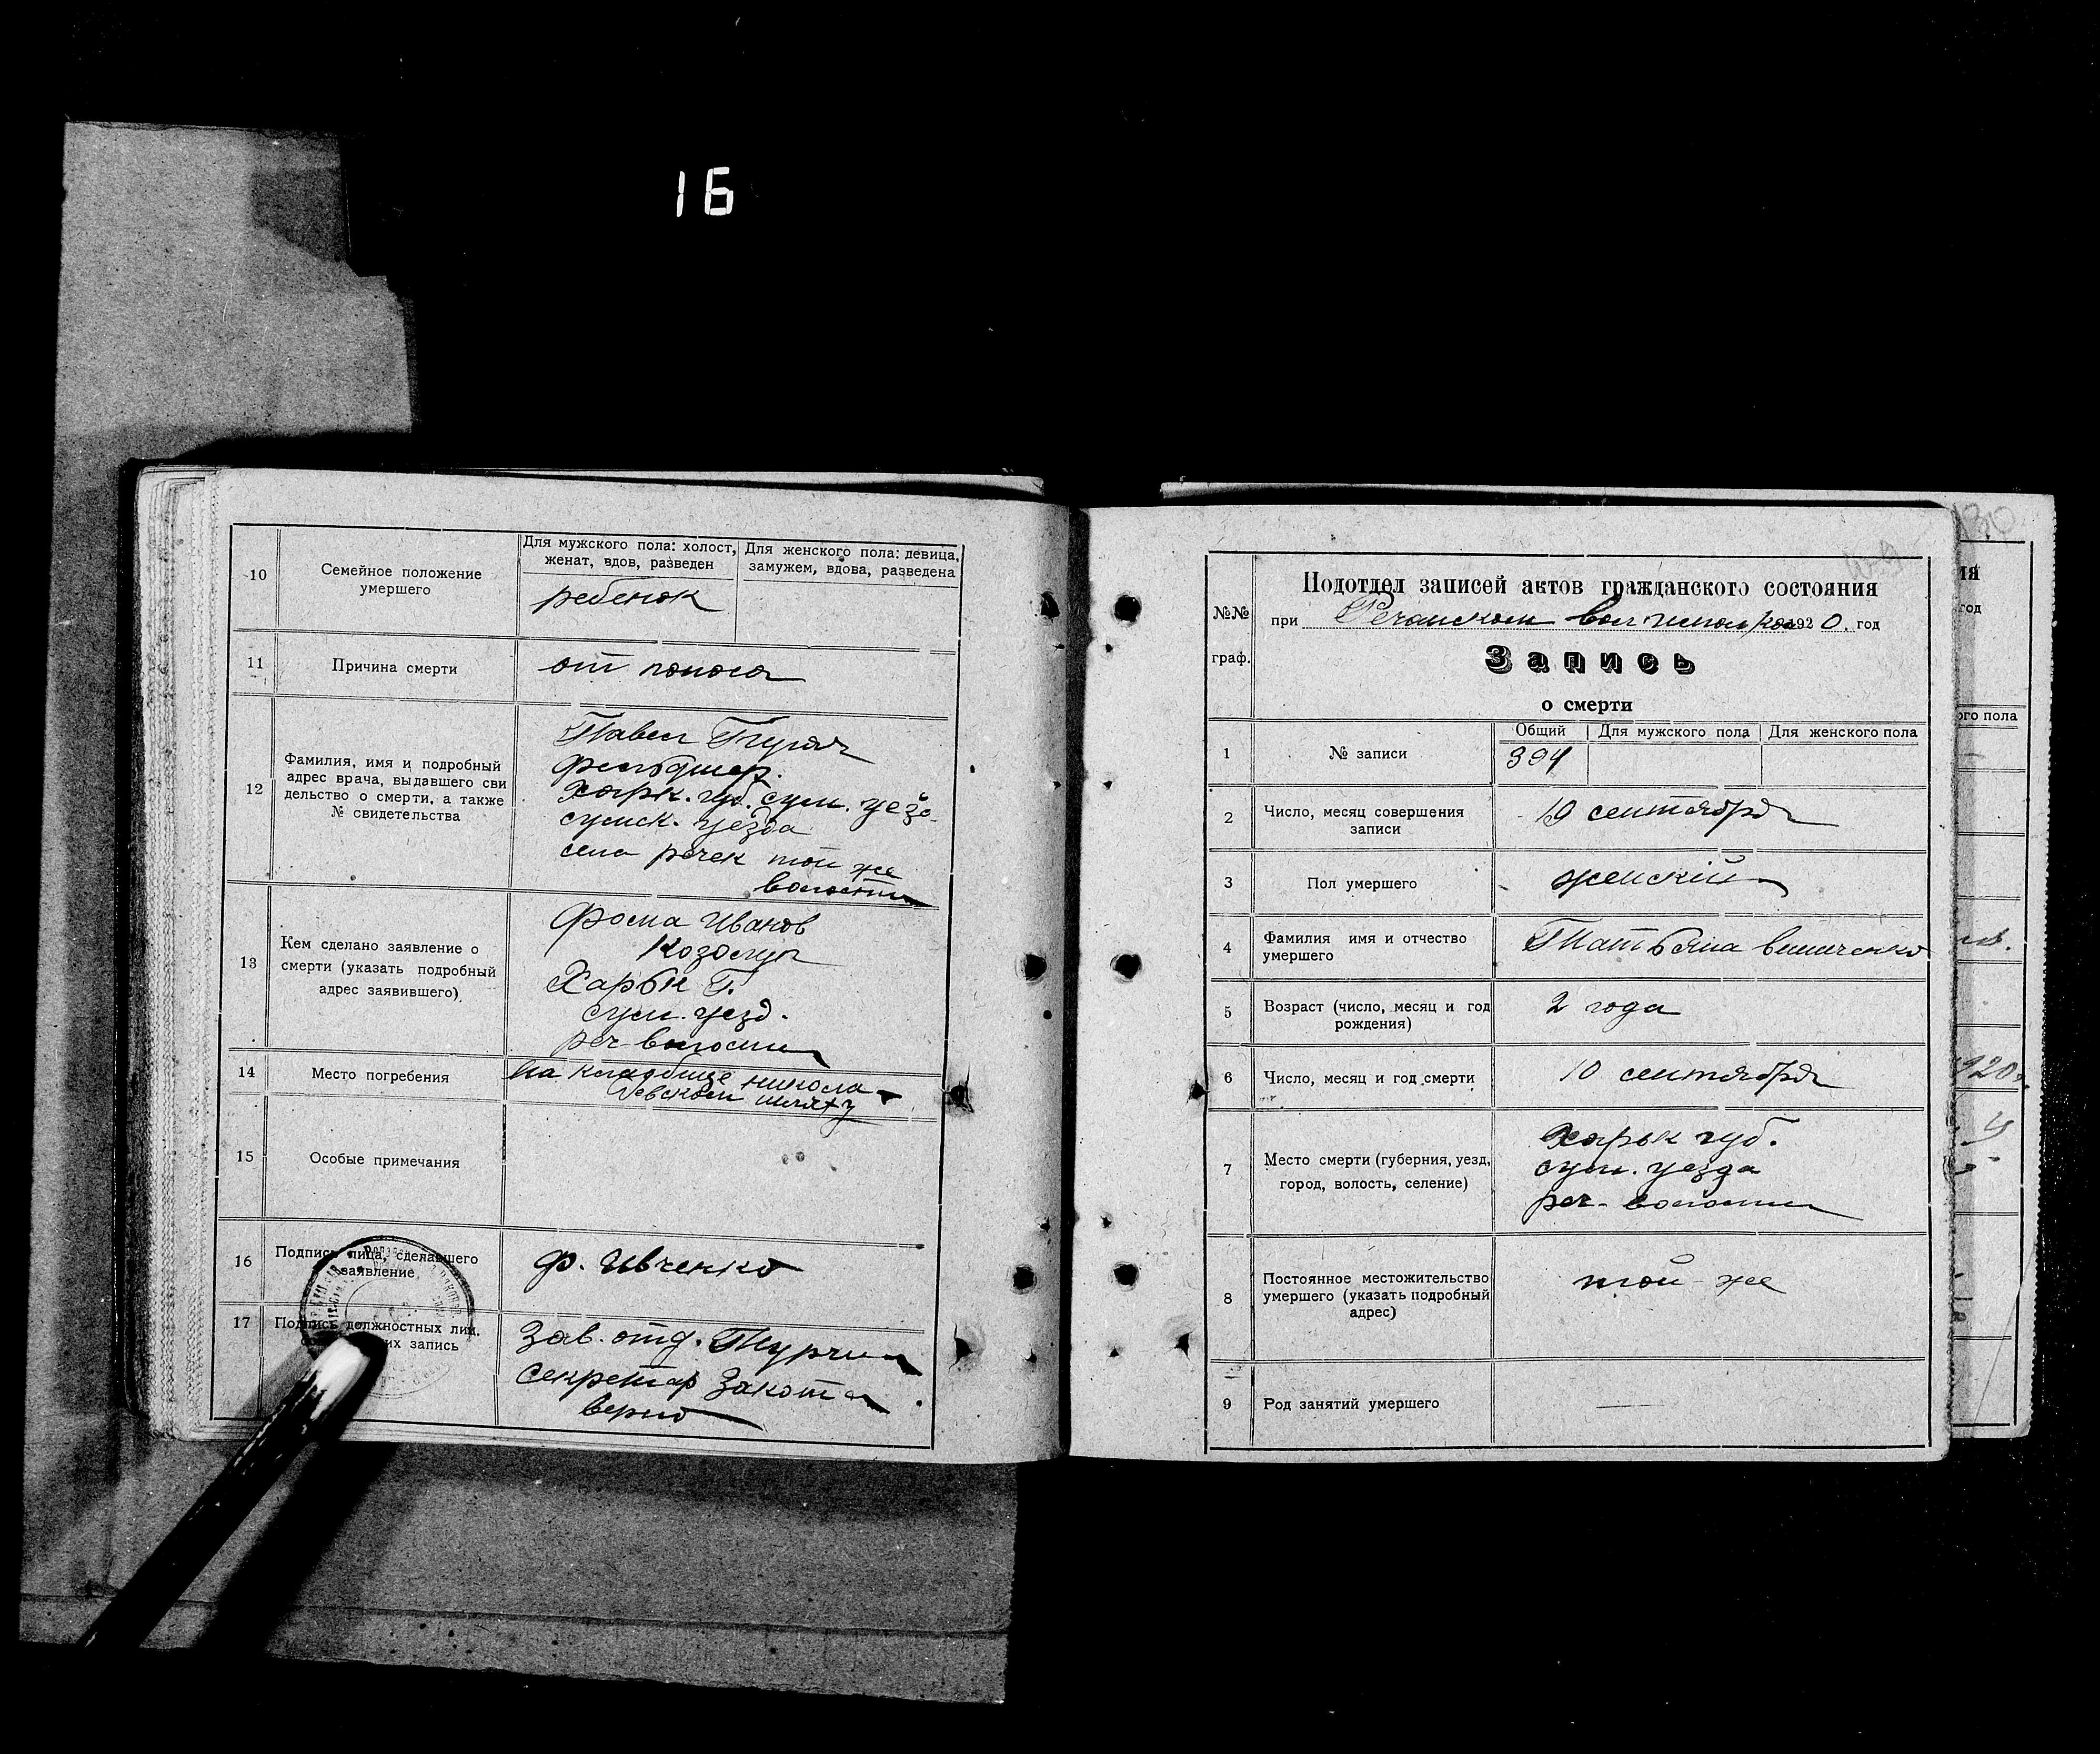 16
10
Семейное положение
умершего
Для мужского пола: холост,
женат, вдов, разведен
Для женского пола: девица,
замужем, вдова, разведена
ребенок
11
Причина смерти
от поноса
12
Фамилия, имя и подробный
адрес врача, выдавшего сви
детельство о смерти, а также
№ свидетельства
Павел
фельдшер.
Харк. губ. сум. уезд
сумск. уезда
села речек той же
волости
13
Кем сделано заявление о
смерти (указать подробный
адрес заявившего)
Фома Иванов
Харьк Г.
сум. уезд.
реч волости
14
Место погребения
на кладбище никола
евском шляху
15
Особые примечания
16
Подпись лица, сделавшего
заявление
ф. Ивченко
17
Подпись должностных лиц,
их запись
Зав. отд.
секретар Закота
верно
№№
граф.
Подотдел записей актов гражданского состояния
при Речанском 1920. год
Запись
о смерти
1
№ записи
Общий
Для мужского пола
Для женского пола
394
2
Число, месяц совершения
записи
19 сентября
3
Пол умершего
женский
4
Фамилия имя и отчество
умершего
Татьяна
5
Возраст (число, месяц и год
рождения)
2 года
6
Число, месяц и год смерти
10 сентября
7
Место смерти (губерния, уезд,
город, волость, селение)
Харьк губ.
сум. уезда
реч- волости
8
Постоянное местожительство
умершего (указать подробный
адрес)
той-же
9
Род занятий умершего
ия
год
ого пола
920